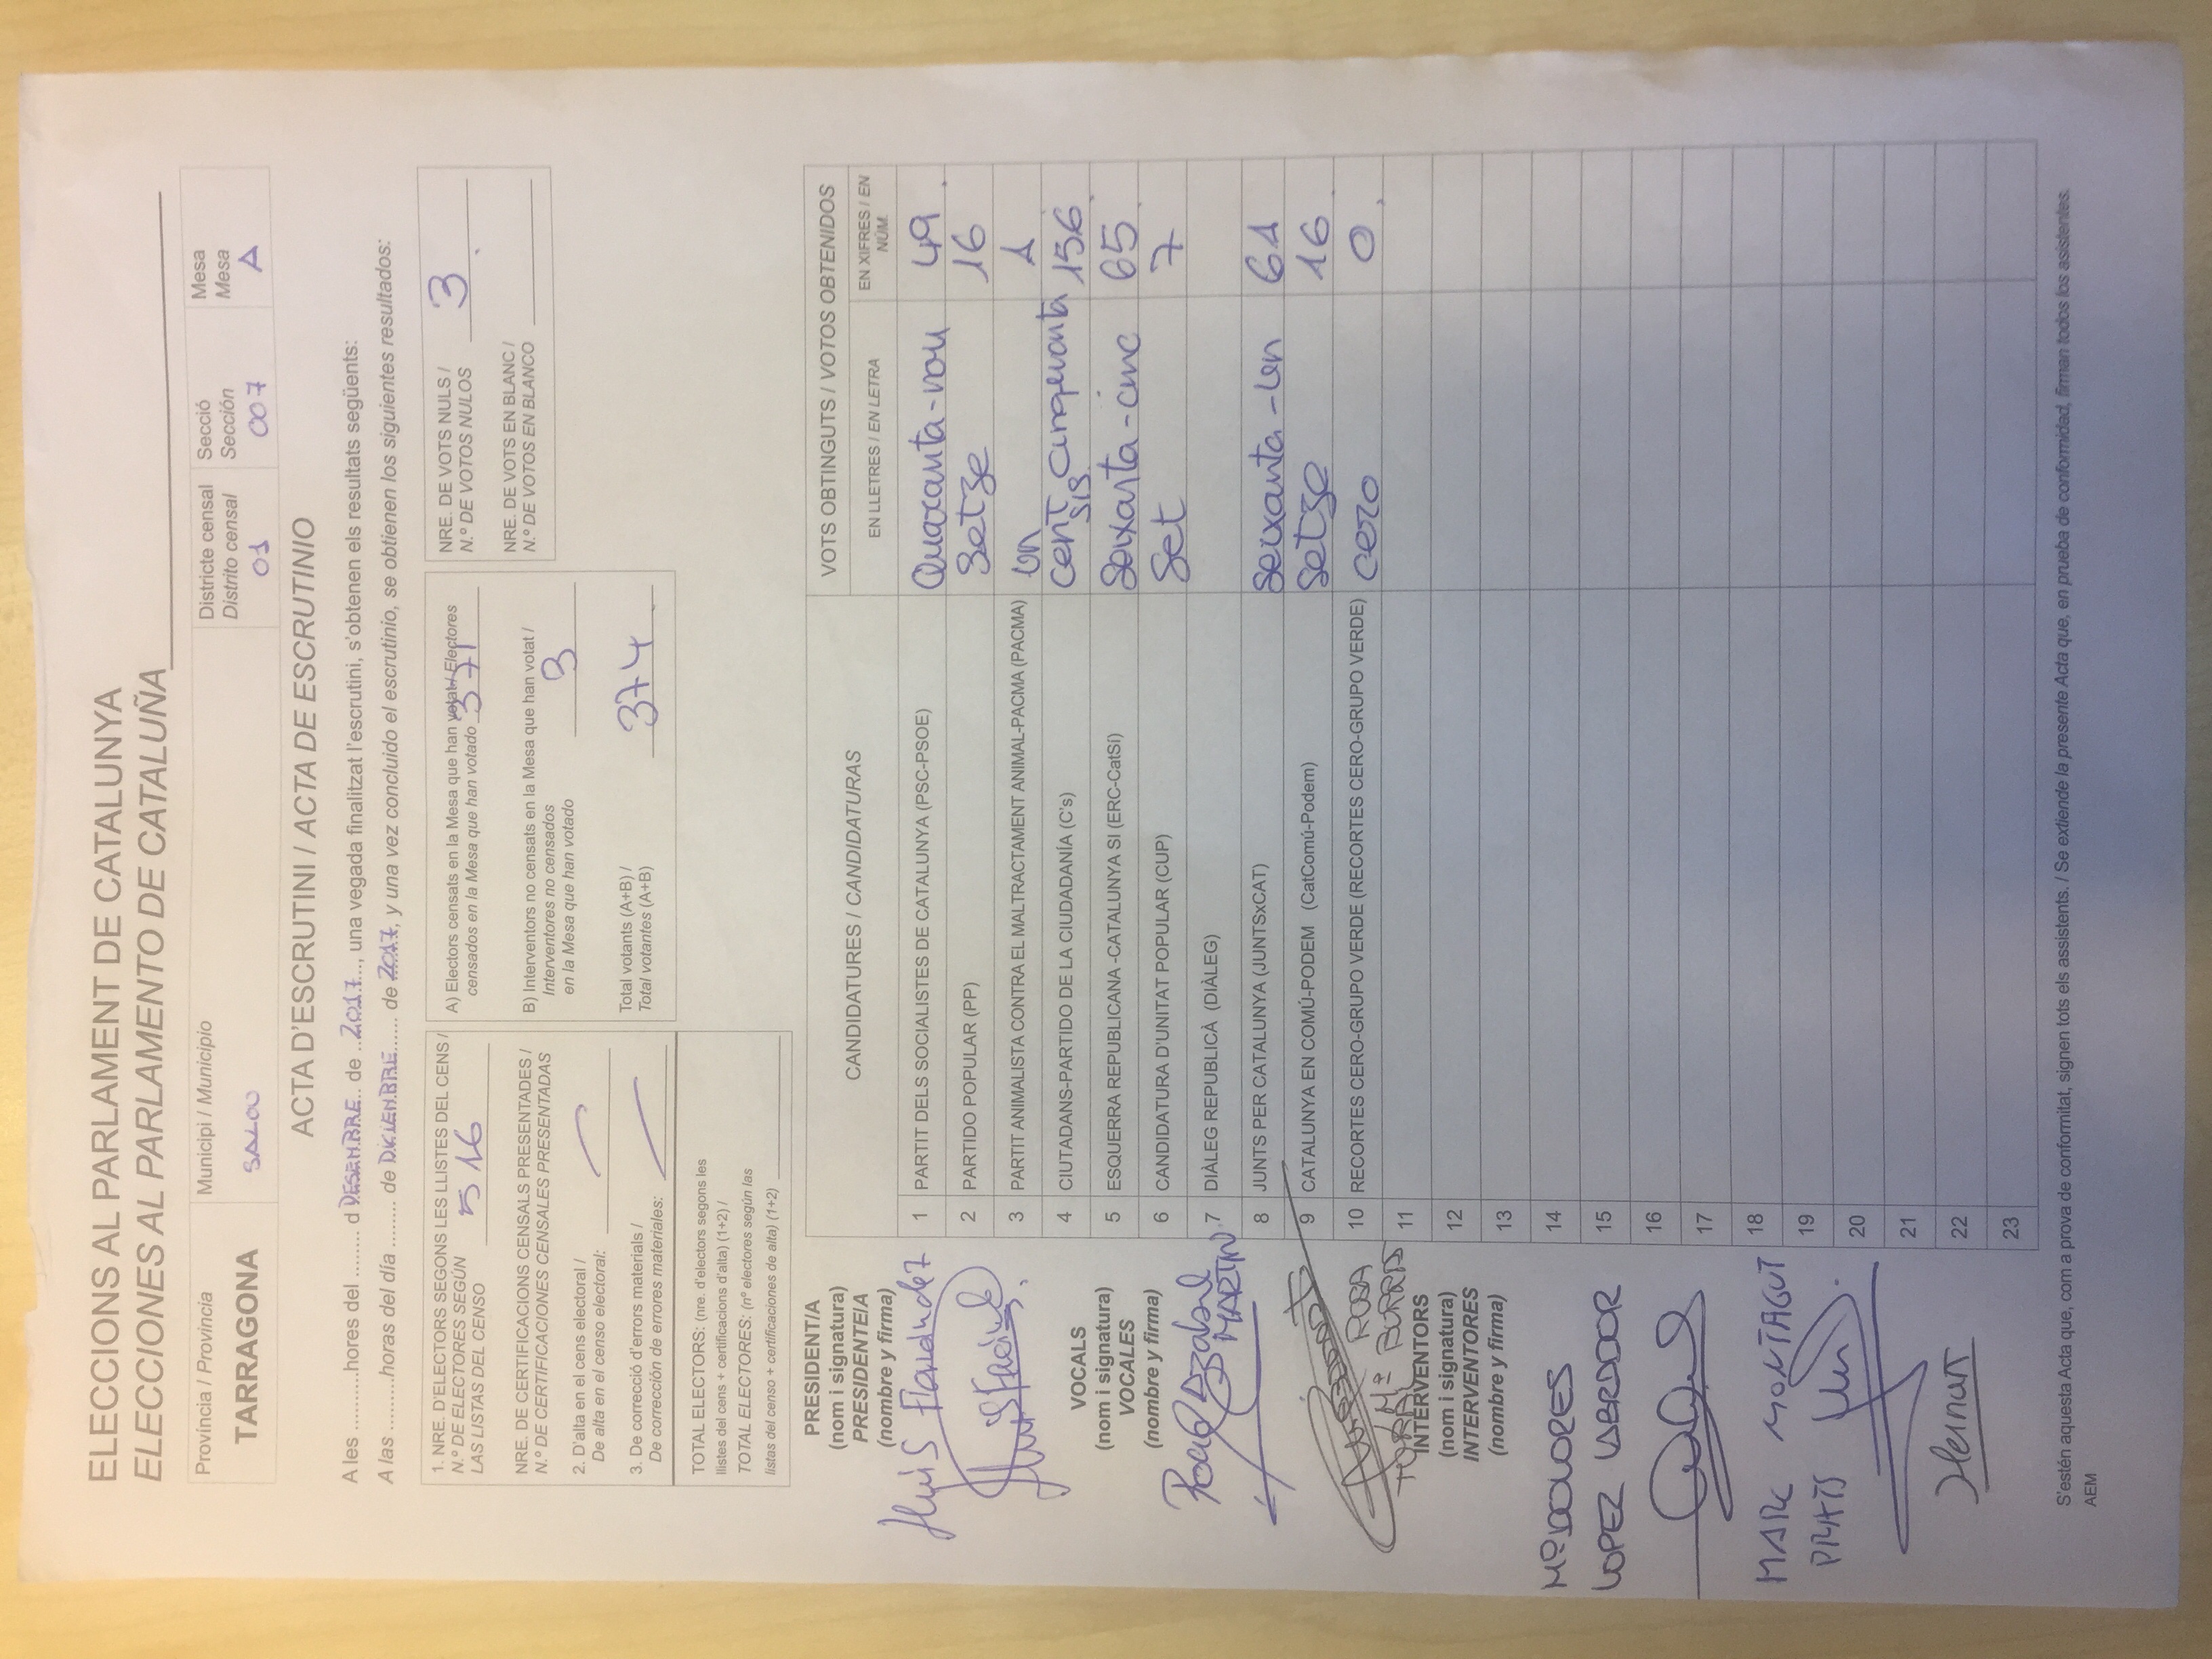 ELECCIONS AL PARLAMENT DE CATALUNYA
ELECCIONES AL PARLAMENTO DE CATALUÑA
Província / Provincia
TARRAGONA
Municipi / Municipio
SALOU
Districte censal
Distrito censal
01
Secció
Sección
007
Mesa
Mesa
A
ACTA D'ESCRUTINI / ACTA DE ESCRUTINIO
A les .........hores del ........ d DESEMBRE.. de ..2017..., una vegada finalitzat l'escrutini, s'obtenen els resultats següents:
A las .........horas del día ........ de DICIEMBRE...... de 2017, y una vez concluido el escrutinio, se obtienen los siguientes resultados:
1. NRE. D'ELECTORS SEGONS LES LLISTES DEL CENS /
N.º DE ELECTORES SEGÚN
LAS LISTAS DEL CENSO 516
NRE. DE CERTIFICACIONS CENSALS PRESENTADES /
N.º DE CERTIFICACIONES CENSALES PRESENTADAS
2. D'alta en el cens electoral /
De alta en el censo electoral:
3. De correcció d'errors materials /
De corrección de errores materiales:
TOTAL ELECTORS: (nre. d'electors segons les
llistes del cens + certificacions d'alta) (1+2) /
TOTAL ELECTORES: (nº electores según las
listas del censo + certificaciones de alta) (1+2)
A) Electors censats en la Mesa que han votat / Electores
censados en la Mesa que han votado 371
B) Interventors no censats en la Mesa que han votat /
Interventores no censados
en la Mesa que han votado 3
Total votants (A+B) /
Total votantes (A+B) 374
NRE. DE VOTS NULS /
N.º DE VOTOS NULOS 3
NRE. DE VOTS EN BLANC /
N.º DE VOTOS EN BLANCO
PRESIDENT/A
(nom i signatura)
PRESIDENTE/A
(nombre y firma)
VOCALS
(nom i signatura)
VOCALES
(nombre y firma)
MARTIN
ROSA
Mª BORRAS
TORAL
INTERVENTORS
(nom i signatura)
INTERVENTORES
(nombre y firma)
Mª DOLORES
LOPEZ LABRADOR
MARC MONTAGUT
PRATS
CANDIDATURES / CANDIDATURAS
VOTS OBTINGUTS / VOTOS OBTENIDOS
EN LLETRES / EN LETRA
EN XIFRES / EN
NÚM.
1 PARTIT DELS SOCIALISTES DE CATALUNYA (PSC-PSOE) Quaranta-nou 49
2 PARTIDO POPULAR (PP) Setze 16
3 PARTIT ANIMALISTA CONTRA EL MALTRACTAMENT ANIMAL-PACMA (PACMA) un 1
4 CIUTADANS-PARTIDO DE LA CIUDADANÍA (C's) cent cinquanta 156
sis
5 ESQUERRA REPUBLICANA -CATALUNYA SI (ERC-CatSí) Seixanta-cinc 65
6 CANDIDATURA D'UNITAT POPULAR (CUP) Set 7
7 DIÀLEG REPUBLICÀ (DIÀLEG)
8 JUNTS PER CATALUNYA (JUNTSxCAT) Seixanta-un 61
9 CATALUNYA EN COMÚ-PODEM (CatComú-Podem) Setze 16
10 RECORTES CERO-GRUPO VERDE (RECORTES CERO-GRUPO VERDE) cero 0
11
12
13
14
15
16
17
18
19
20
21
22
23
S'estén aquesta Acta que, com a prova de conformitat, signen tots els assistents. / Se extiende la presente Acta que, en prueba de conformidad, firman todos los asistentes.
AEM